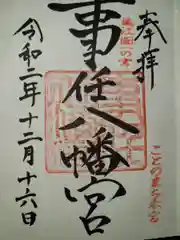 奉拝
遠江國一の宮
ことのままの宮
事任八幡宮
令和二年十二月十六日